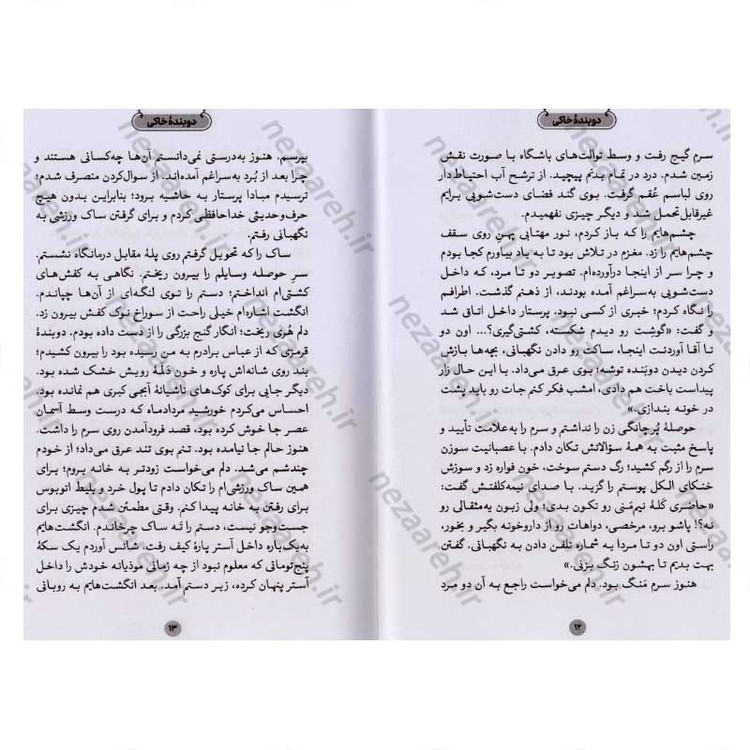 دوبنده خاکی
سرم گیج رفت و وسط توالت‌های باشگاه با صورت نقش
زمین شدم. درد در تمام بدنم پیچید. از ترشح آب احتیاط‌دار
روی لباسم عُقم گرفت. بوی گند فضای دست‌شویی برایم
غیرقابل‌تحمل شد و دیگر چیزی نفهمیدم.
چشم‌هایم را که باز کردم، نور مهتابی پهنِ روی سقف
چشم‌هایم را زد. مغزم در تلاش بود تا به یاد بیاورم کجا بودم
و چرا سر از اینجا درآورده‌ام. تصویر دو تا مرد، که داخل
دست‌شویی به‌سراغم آمده بودند، از ذهنم گذشت. اطرافم
را نگاه کردم؛ خبری از کسی نبود. پرستار داخل اتاقی شد
و گفت: «گوشِت رو دیدم شکسته، کشتی‌گیری؟... اون دو
تا آقا آوردنت اینجا، ساکت رو دادن نگهبانی. بچه‌ها بازش
کردن دیدن دوبَنده توشه؛ بوی عرق می‌داد. با این حالِ زار
پیداست باخت هم دادی، امشب فکر کنم جات رو باید پشت
در خونه بندازی.»
حوصلهٔ پُرچانگی زن را نداشتم و سرم را به‌علامت تأیید و
پاسخ مثبت به همهٔ سؤالاتش تکان دادم. با عصبانیت سوزن
سرم را از رگم کشید؛ رگ دستم سوخت، خون فواره زد و سوزش
خنکای الکل پوستم را گزید. با صدای نیمه‌کلفتش گفت:
«حاضری کَلهٔ نیم‌مَنی رو تکون بدی؛ ولی زبون یه‌مثقالی رو
نه؟! پاشو برو، مرخصی، دواهات رو از داروخونه بگیر و بخور،
راستی اون دو تا مردا یه شماره تلفن دادن به نگهبانی. گفتن
بهت بدیم تا بهشون زنگ بزنی.»
هنوز سرم مَنگ بود. دلم می‌خواست راجع به آن دو مرد
۱۲
دوبنده خاکی
بپرسم. هنوز به‌درستی نمی‌دانستم آن‌ها چه‌کسانی هستند و
چرا بعد از بُرد به‌سراغم آمده‌اند. از سوال‌کردن منصرف شدم؛
ترسیدم مبادا پرستار به حاشیه برود؛ بنابراین بدون هیچ
حرف‌وحدیثی خداحافظی کردم و برای گرفتن ساک ورزشی به
نگهبانی رفتم.
ساک را که تحویل گرفتم روی پلهٔ مقابل درمانگاه نشستم.
سرِ حوصله وسایلم را بیرون ریختم. نگاهی به کفش‌های
کشتی‌ام انداختم؛ دستم را توی لنگه‌ای از آن‌ها چپاندم.
انگشت اشاره‌ام خیلی راحت از سوراخ نوک کفش بیرون زد.
دلم هُری ریخت؛ انگار گنج بزرگی را از دست داده بودم. دوبندهٔ
قرمزی که از عباس برادرم به من رسیده بود را بیرون کشیدم؛
بند روی شانه‌اش پاره و خون دَلَمهٔ رویش خشک شده بود.
دیگر جایی برای کوک‌های ناشیانهٔ آبجی کبری هم نمانده بود.
احساس می‌کردم خورشید مردادماه که درست وسط آسمان
عصر جا خوش کرده بود، قصد فرودآمدن روی سرم را داشت.
هنوز حالم جا نیامده بود. تنم بوی تند عرق می‌داد؛ از خودم
چندشم می‌شد. دلم می‌خواست زودتر به خانه بروم؛ برای
همین ساک ورزشی‌ام را تکان دادم تا پول خرد و بلیط اتوبوس
برای رفتن به خانه پیدا کنم. وقتی مطمئن شدم چیزی برای
جست‌وجو نیست، دستم را تَه ساک چرخاندم. انگشت‌هایم
به‌یک‌باره داخل آستر پارهٔ کیف رفت. شانس آوردم یک سکهٔ
پنج‌تومانی که معلوم نبود از چه زمانی موذیانه خودش را داخل
آستر پنهان کرده، زیر دستم آمد. بعد انگشت‌هایم به روبانی
۱۳
nezaareh.ir